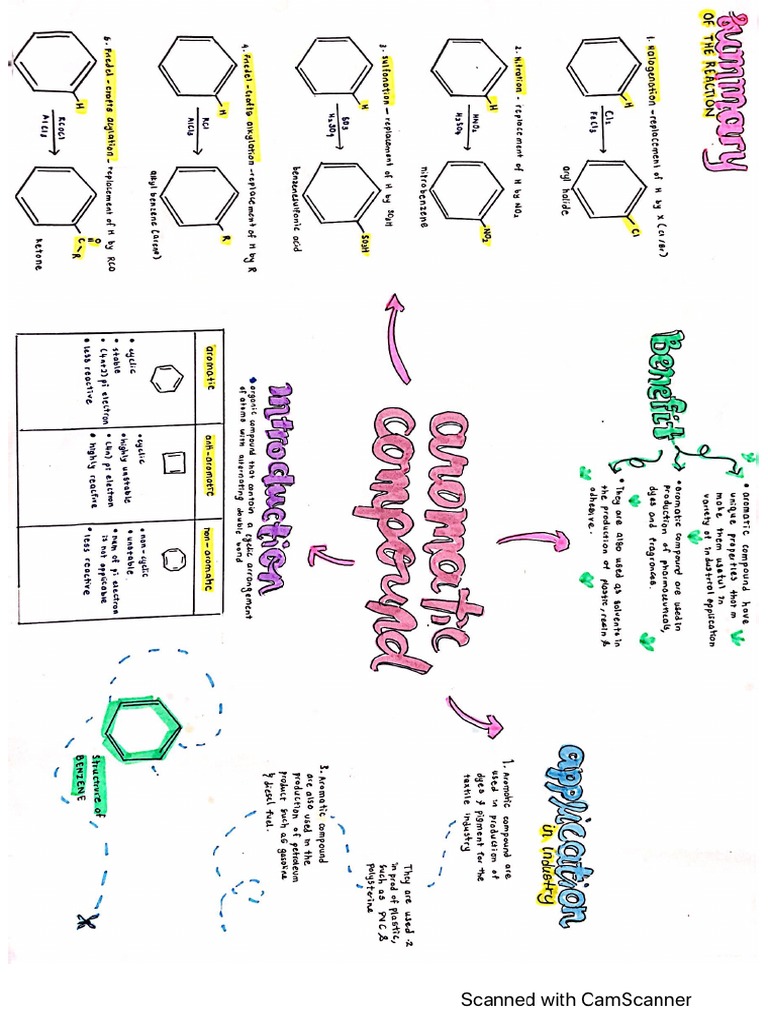 Summary
OF THE REACTION
1. Halogenation - replacement of H by X (Cl/Br)
H
Cl2
FeCl3
Cl
aryl halide
2. Nitration - replacement of H by NO2
H
HNO3
H2SO4
NO2
nitrobenzene
3. Sulfonation - replacement of H by SO3H
H
SO3
H2SO4
SO3H
benzenesulfonic acid
4. Friedel-crafts alkylation - replacement of H by R
H
RCl
AlCl3
R
alkyl benzene (arene)
5. Friedel-crafts acylation - replacement of H by RCO
H
RCOCl
AlCl3
O
C-R
ketone
Benefit
• aromatic compound have
unique properties that m
make them useful in
variety of industrial application
• aromatic compound are used in
production of pharmaceuticals,
dyes and fragrances.
• They are also used as solvents in
the production of plastic, resin &
adhesive.
aromatic
compound
introduction
• organic compound that contain a cyclic arrangement
of atoms with alternating double bond
aromatic
• cyclic
• stable
• (4n+2) pi electron
• less reactive
anti-aromatic
• cyclic
• highly unstable
• (4n) pi electron
• highly reactive
non-aromatic
• non-cyclic
• unstable
• num of pi electron
is not applicable
• less reactive
application
in industry
1. Aromatic compound are
used in production of
dyes & pigment for the
textile industry
They are used .2
in prod of plastic,
such as PVC &
polysterine
3. Aromatic compound
are also used in the
production of petroleum
product such as gasoline
& diesel fuel.
Structure of
BENZENE
Scanned with CamScanner